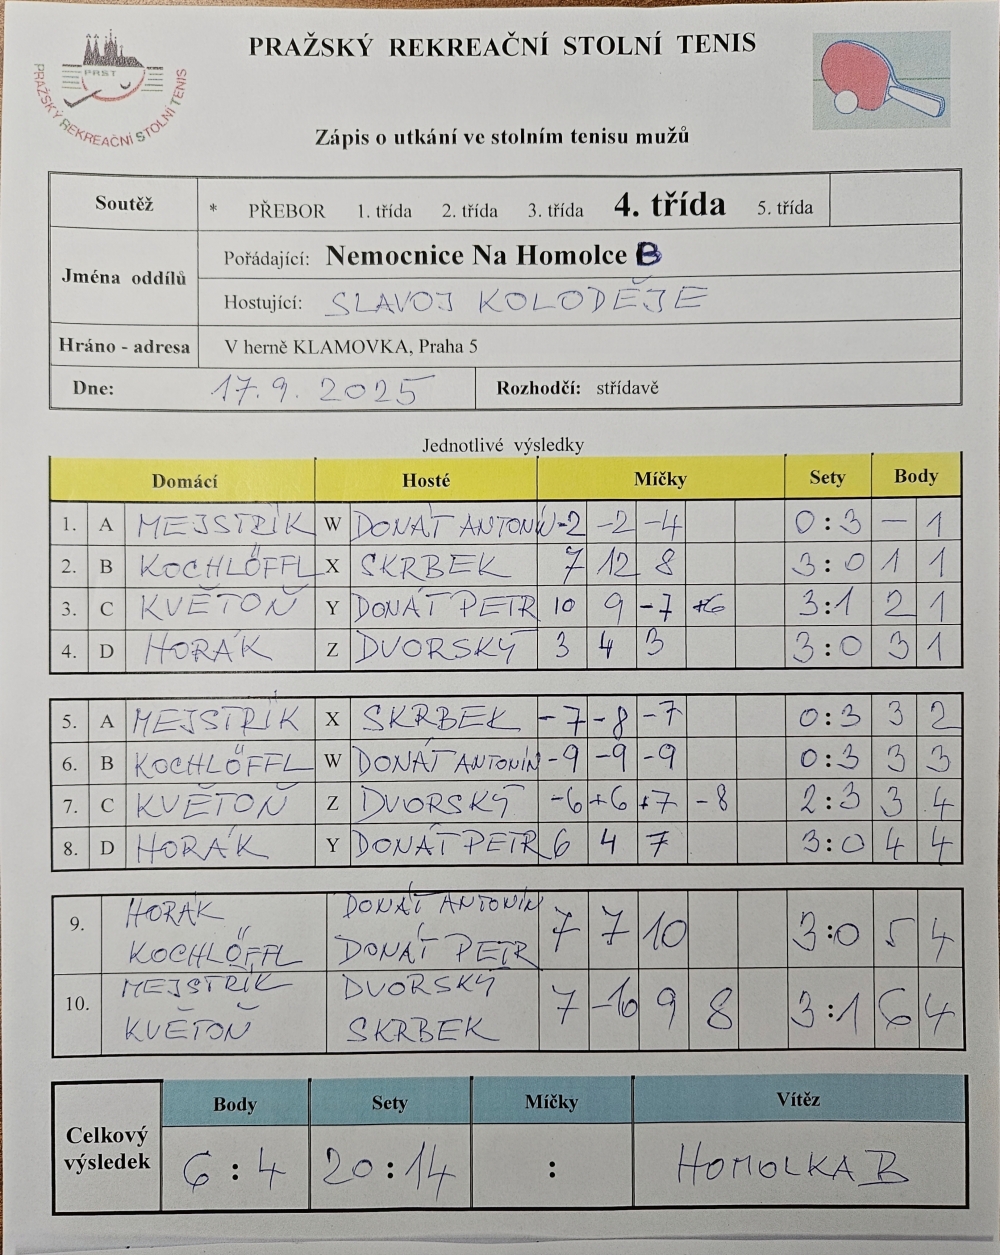 PRAŽSKÝ REKREAČNÍ STOLNÍ TENIS
PRST
PRAŽSKÝ REKREAČNÍ STOLNÍ TENIS
Zápis o utkání ve stolním tenisu mužů
Soutěž * PŘEBOR 1. třída 2. třída 3. třída 4. třída 5. třída
Jména oddílů
Pořádající: Nemocnice Na Homolce B
Hostující: SLAVOJ KOLODĚJE
Hráno - adresa V herně KLAMOVKA, Praha 5
Dne: 17. 9. 2025 Rozhodčí: střídavě
Jednotlivé výsledky
Domácí Hosté Míčky Sety Body
1. A MEJSTRÍK W DONÁT ANTONÍN -2 -2 -4 0:3 - 1
2. B KOCHLÖFFL X SKRBEK 7 12 8 3:0 1 1
3. C KVĚTOŇ Y DONÁT PETR 10 9 -7 +6 3:1 2 1
4. D HORÁK Z DVORSKÝ 3 4 3 3:0 3 1
5. A MEJSTRÍK X SKRBEK -7 -8 -7 0:3 3 2
6. B KOCHLÖFFL W DONÁT ANTONÍN -9 -9 -9 0:3 3 3
7. C KVĚTOŇ Z DVORSKÝ -6 +6 +7 -8 2:3 3 4
8. D HORÁK Y DONÁT PETR 6 4 7 3:0 4 4
9. HORÁK DONÁT ANTONÍN 7 7 10 3:0 5 4
KOCHLÖFFL DONÁT PETR
10. MEJSTRÍK DVORSKÝ 7 -10 9 8 3:1 6 4
KVĚTOŇ SKRBEK
Body Sety Míčky Vítěz
Celkový výsledek 6:4 20:14 : HOMOLKA B